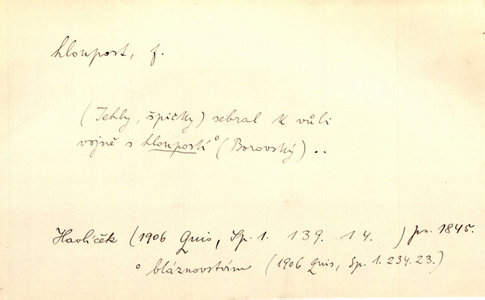 hloupost, f.
(Jehly, špičky) sebral k vůli
vojně s hloupostí° (Borovský) ..
Havlíček (1906 Quis, Sp. 1. 139. 14. ) pr. 1845.
° bláznovstvím (1906 Quis, Sp. 1. 234. 23.)